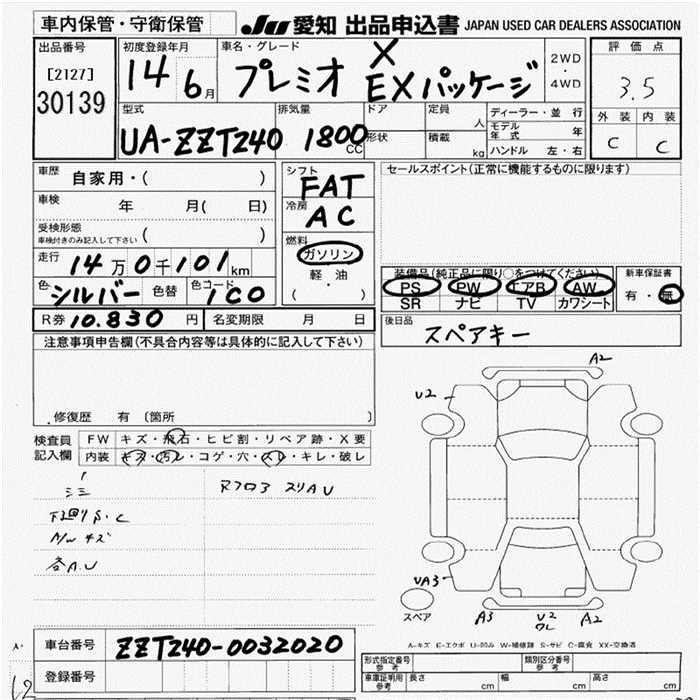 車内保管・守衛保管 JU 愛知 出品申込書 JAPAN USED CAR DEALERS ASSOCIATION
出品番号 初度登録年月 車名・グレード 2WD・4WD 評価点
[2127] 14 6月 プレミオ X
30139 EXパッケージ 3.5
型式 排気量 ドア 定員 人 ディーラー・並 行 外装 内装
UA-ZZT240 1800 CC 形状 積載 kg モデル年式 年 C C
ハンドル 左・右
車歴 自家用・( ) シフト FAT セールスポイント(正常に機能するものに限ります)
車検 年 月( 日) 冷房 AC
受検形態 ( )
車検付きのみ記入して下さい
燃料 ガソリン
走行 14万0千101km 軽・油 装備品(純正品に限り○をつけてください) 新車保証書
色 シルバー 色替 色コード 1C0 ( ) PS PW エアB AW 有・無
SR ナビ TV カワシート
R券 10.830 円 名変期限 月 日 後日品
スペアキー
注意事項申告欄(不具合内容等は具体的に記入して下さい)
修復歴 有 〔箇所
検査員 FW キズ・飛石・ヒビ割・リペア跡・X要
記入欄 内装 キズ・汚レ・コゲ・穴・スレ・キレ・破レ
A2
U2
下廻りS.C
A/Wキズ
各A.U
UA3
スペア A3 U2 A2
A-キズ E-エクボ U-凹み W-補修跡 S-サビ C-腐食 XX-交換済
車台番号 ZZT240-0032020
登録番号
形式指定番号 参考 類別区分番号 参考
車庫証明用 参考 長さ cm 幅 cm 高さ cm